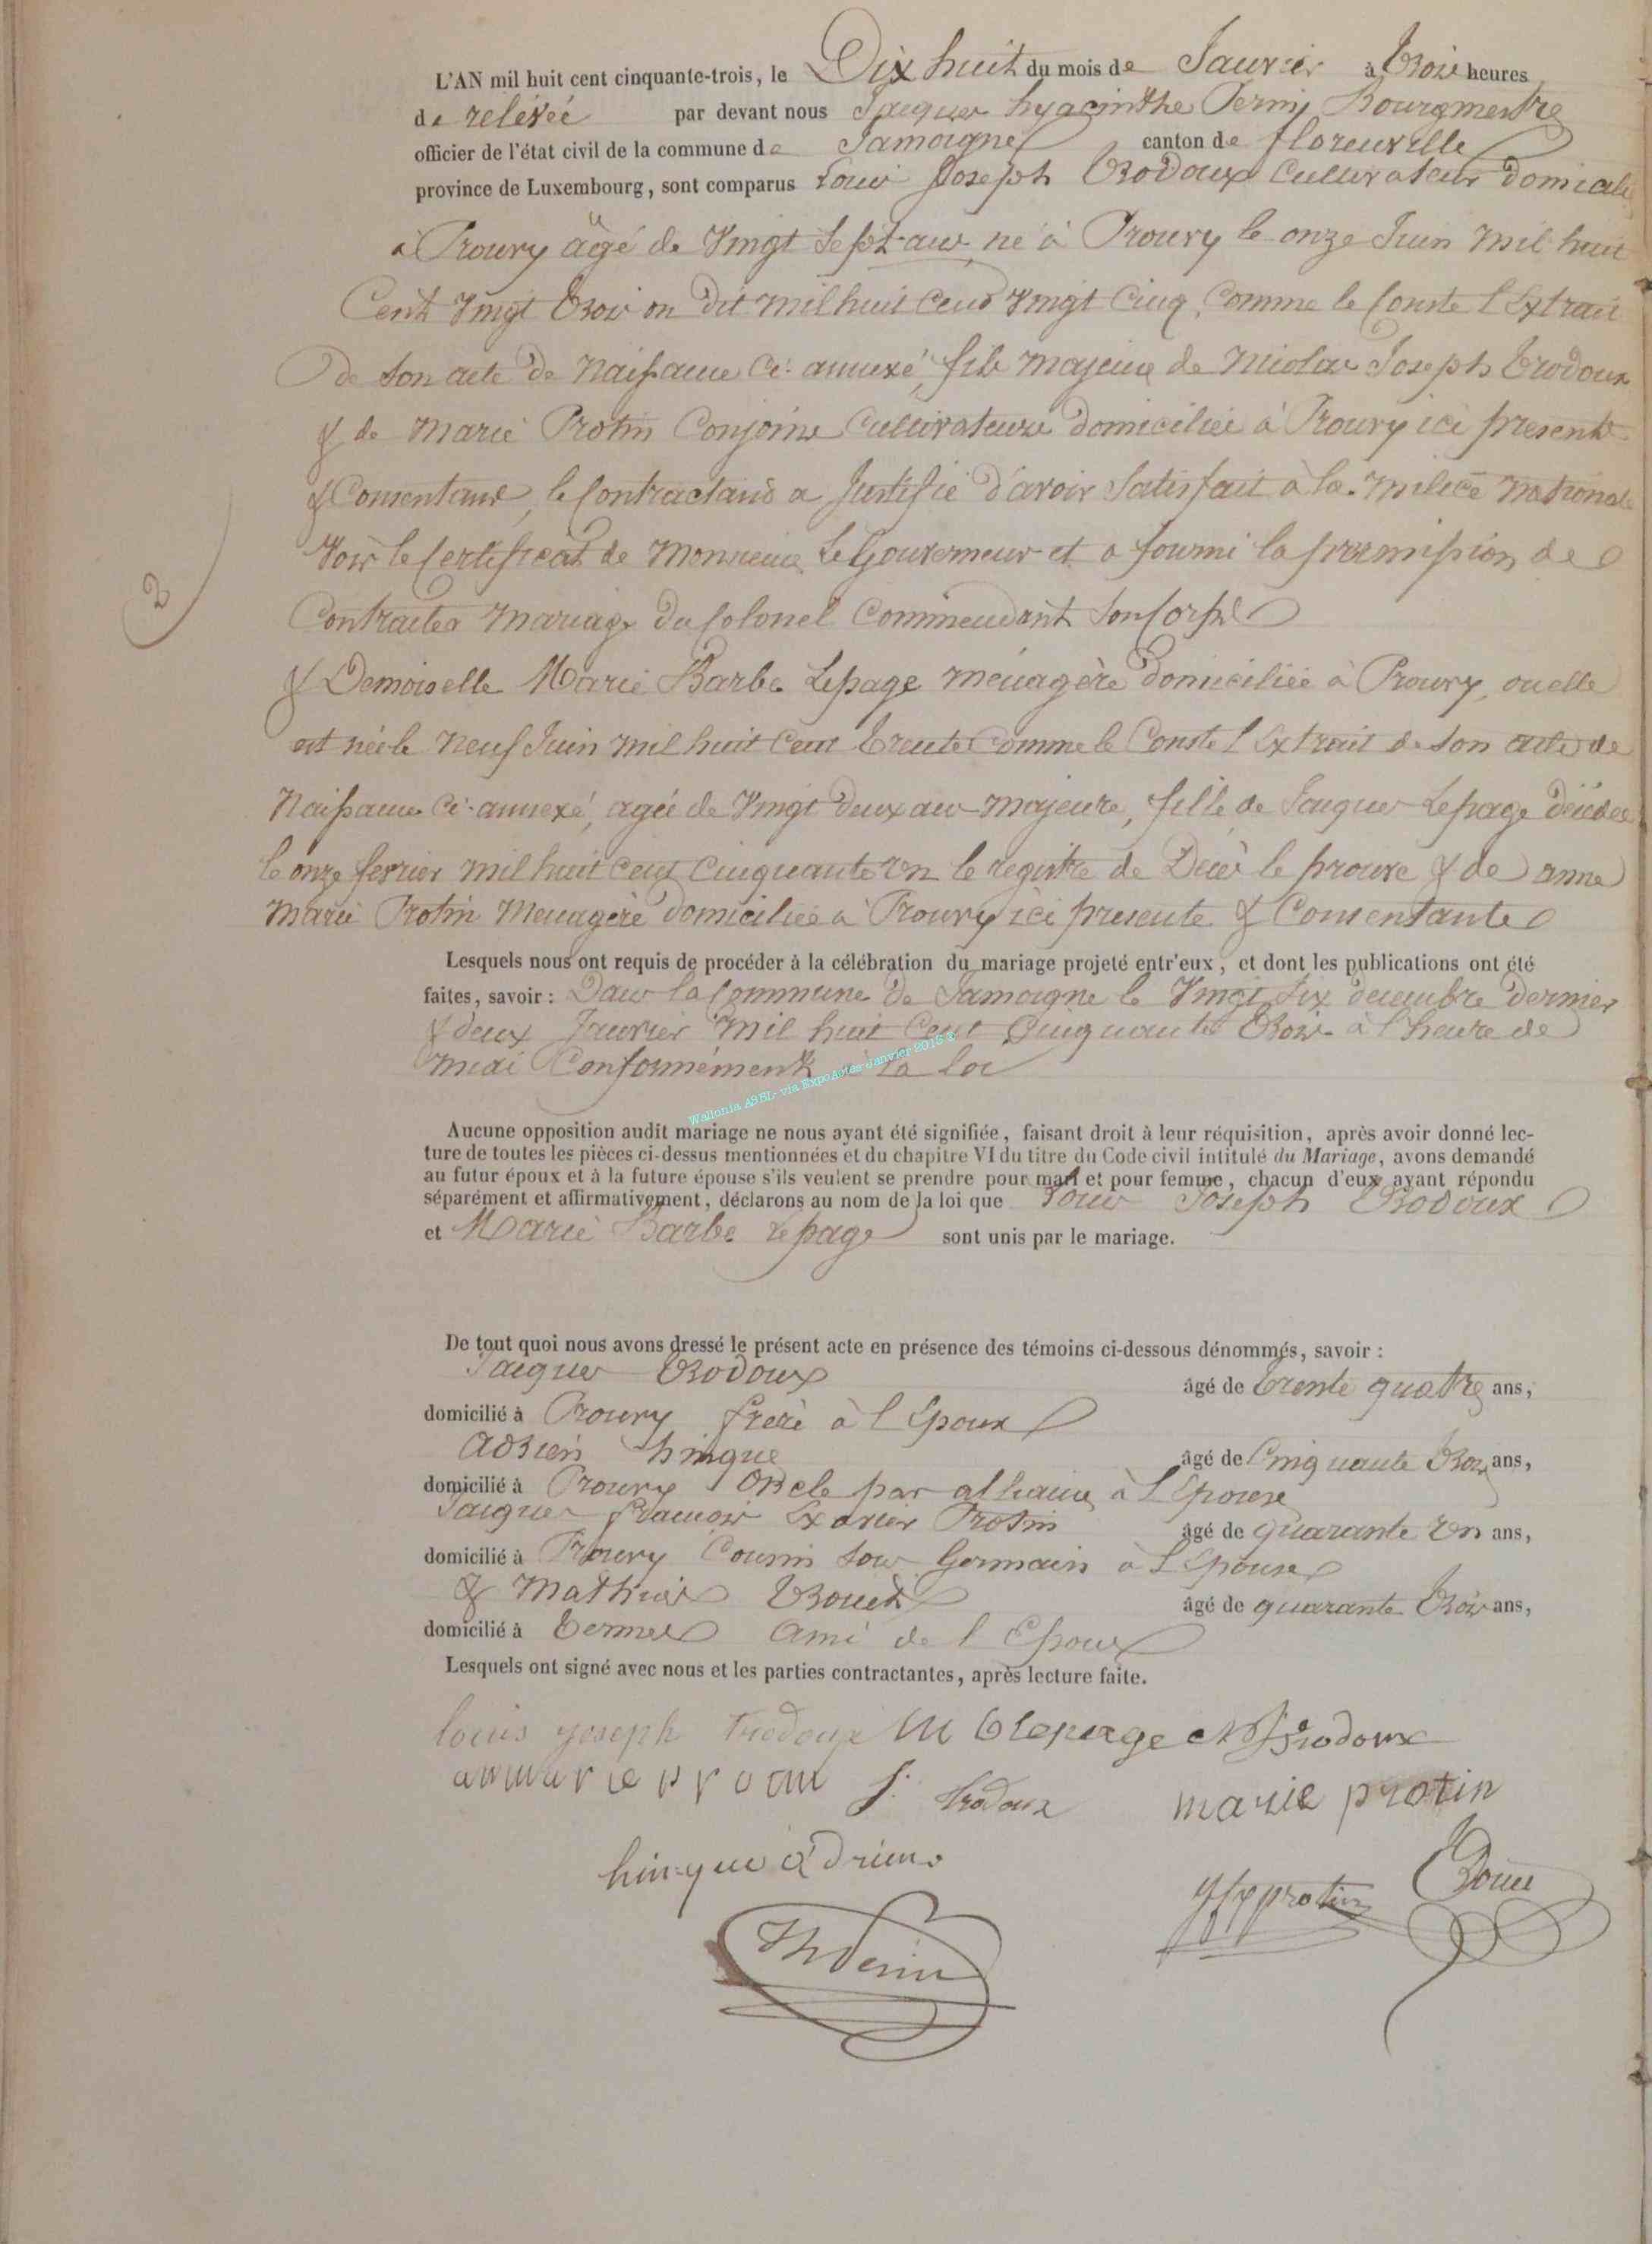 L'AN mil huit cent cinquante-trois, le Dix huit du mois de Janvier à Trois heures
de relévée par devant nous Jacques hyacinthe Pernij Bourgmestre
officier de l'état civil de la commune de Jamoigne canton de florenville
province de Luxembourg, sont comparus Louis Joseph Trodoux Cultivateur domicilié
à Prouvy âgé de Vingt Sept ans né à Prouvy le onze Juin mil huit
Cent Vingt Trois on dit mil huit Cent Vingt Cinq, Comme le Conste l'Extrait
de son acte de Naissance Ci-annexé, fils majeur de Nicolas Joseph Trodoux
& de Marie Protin Conjoins Cultivateurs domiciliés à Prouvy ici présents
& Consentans, le Contractant a Justifié d'avoir Satisfait à la Milice Nationale
Voir le Certificat de Monsieur Le Gouverneur et a fourni la permission de
Contracter Mariage du Colonel Commendant Son Corps
& Demoiselle Marie Barbe Lepage ménagère domiciliée à Prouvy, ou elle
est née le Neuf Juin mil huit Cent Trente Comme le Conste l'Extrait de son acte de
Naissance Ci-annexé, agée de Vingt deux ans majeure, fille de Jacques Lepage décédé
le onze fevrier mil huit Cent Cinquante un le registre de Décès le prouve & de anne
Marie Protin Menagère domiciliée à Prouvy ici presente & Consentante
Lesquels nous ont requis de procéder à la célébration du mariage projeté entr'eux, et dont les publications ont été
faites, savoir: Dans la Commune de Jamoigne le Vingt Six decembre dernier
& deux Janvier Mil huit Cent Cinquante Trois à l'heure de
midi Conformément à la loi
Wallonia ASBL- via ExpoActes Janvier 2015
Aucune opposition audit mariage ne nous ayant été signifiée, faisant droit à leur réquisition, après avoir donné lec-
ture de toutes les pièces ci-dessus mentionnées et du chapitre VI du titre du Code civil intitulé du Mariage, avons demandé
au futur époux et à la future épouse s'ils veulent se prendre pour mari et pour femme, chacun d'eux ayant répondu
séparément et affirmativement, déclarons au nom de la loi que Louis Joseph Trodoux
et Marie Barbe Lepage sont unis par le mariage.
De tout quoi nous avons dressé le présent acte en présence des témoins ci-dessous dénommés, savoir:
Jacques Trodoux âgé de Trente quatre ans,
domicilié à Prouvy frère à l'Epoux
Adrien hinque âgé de Cinquante Trois ans,
domicilié à Prouvy Oncle par alliance à l'Epouse
Jacques francois Exavier Protin âgé de quarante un ans,
domicilié à Prouvy Cousin sous Germain à l'Epouse
& Mathieu Bouet âgé de quarante Trois ans,
domicilié à Termes Ami de l'Epoux
Lesquels ont signé avec nous et les parties contractantes, après lecture faite.
2
louis joseph trodoux M B lepage N J trodoux
annmarie protin J. trodoux marie protin
hinque adrien
JfX protin